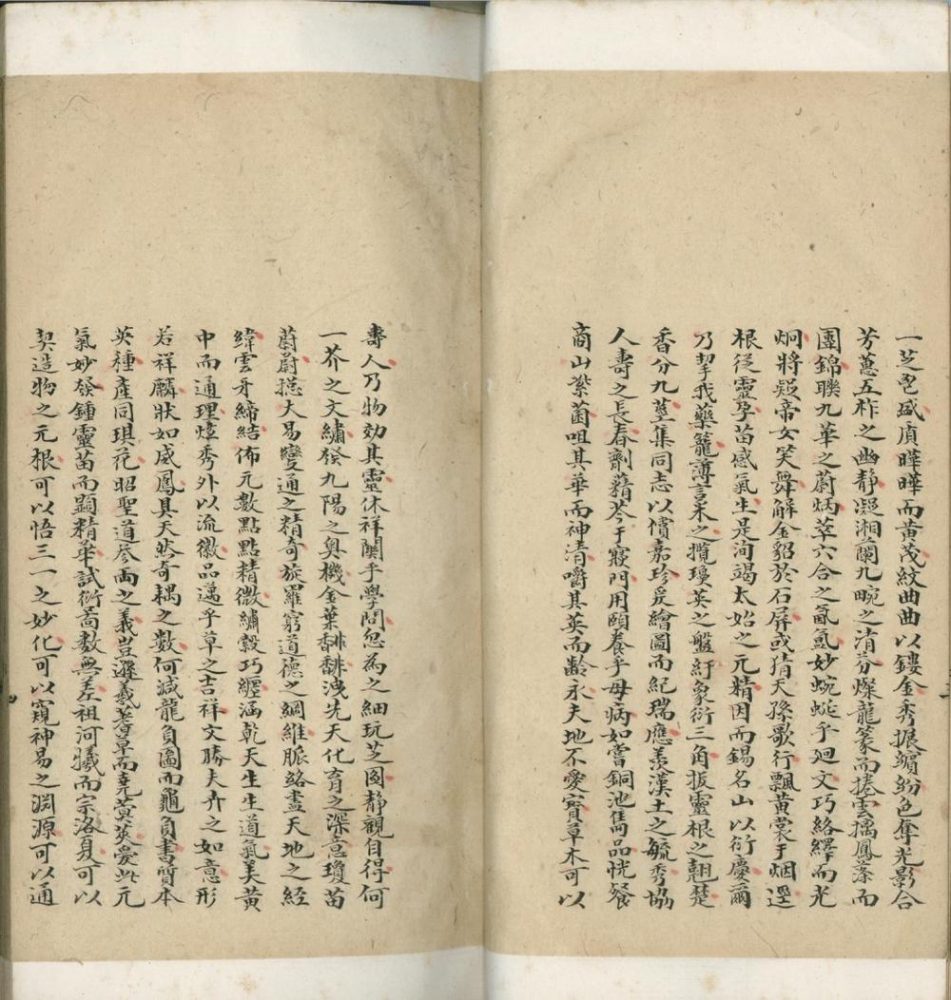 一芝皃盛廎曄曄而黃茂紋曲曲以鏤金秀振繽紛色奪光影合
芳蕙五柞之幽静凝湘蘭九畹之清芬燦龍篆而捧雲擒鳳藻而
團錦聯九華之蔚炳萃六合之氤氳妙蜿蜒乎廻文巧絡繹而光
炯將疑帝女笑舞解金貂於石屏或猜天孫歌行飄黃裳于烟逕
根從靈孕苗感氣生是洵竭太始之元精因而錫名山以衍慶爾
乃挈我藥籠薄言采之攬瓊英之盤紆象衍三角扳靈根之翹楚
香分九莖集同志以償嘉珍爰繪圖而紀瑞應羨漢土之毓秀協
人壽之長春劑藉苓于寢門用頤養乎母病如嘗銅池雋品恍餐
商山紫菌咀其華而神清嚼其英而齡永夫地不愛寶草木可以
壽人乃物効其靈休祥関乎學問忽為之細玩芝圖静觀自得何
一芥之文繡發九陽之奥機金葉馡馡洩先天化育之深意瓊苗
蔚蔚撼大易變通之精奇旋羅窮道德之綱維脈絡畫天地之經
緯雲牙締結佈元數點點精微繡縠巧纒涵乾天生生道氣美黃
中而通理煌秀外以流徽品邁乎草之吉祥文勝夫卉之如意形
若祥麟狀如威鳳具天然奇耦之數何減龍負圖而龜負書質本
英種產同琪花昭聖道參兩之義豈遜羲蓍草而堯蓂莢爰此元
氣妙發鍾靈苗而顕精華試衍蓍數無差祖河犧而宗洛夏可以
契造物之元根可以悟三一之妙化可以窺神易之淵源可以通